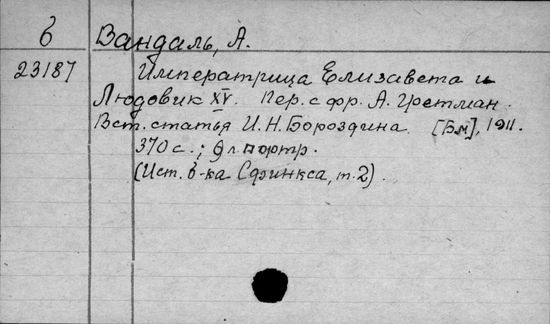 б Вандаль, А.
23187 Императрица Елизавета и
Людовик XV. Пер. с фр. А. Гретман.
Вст. статья И.Н. Бороздина. [Б.м], 1911.
370 с.; 9 л портр.
(Ист. б-ка Сфинкса, т.2).